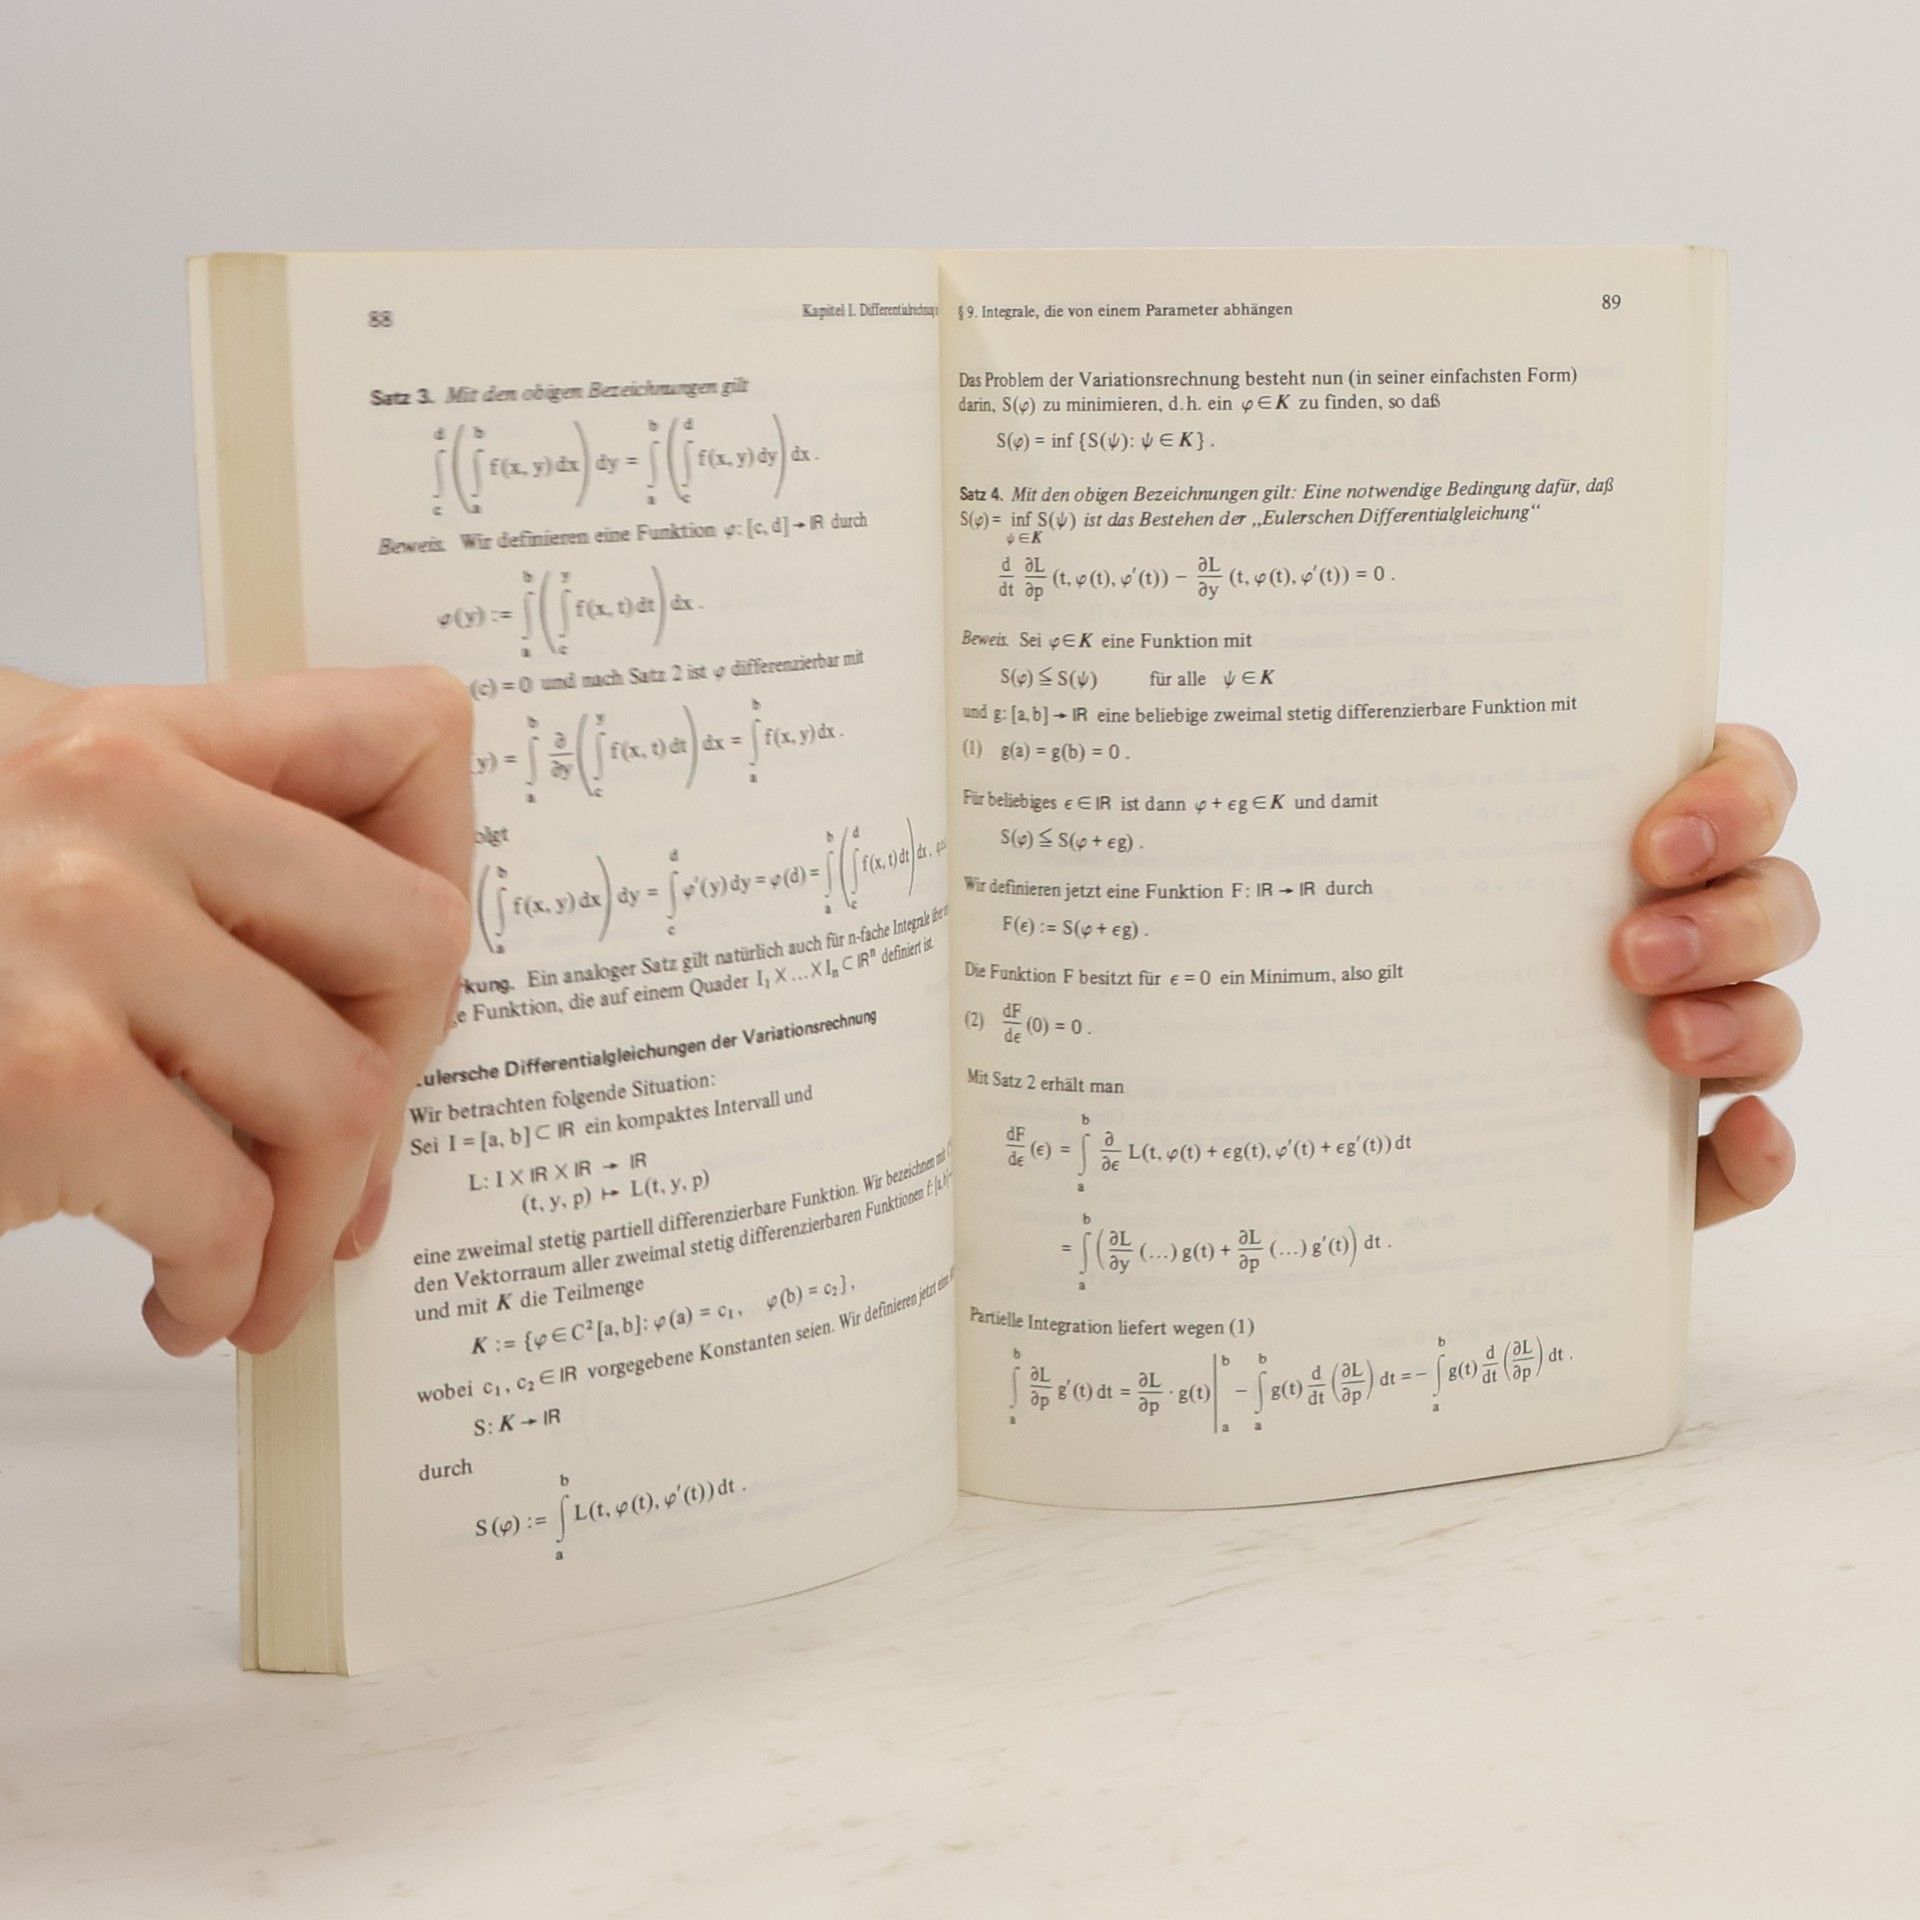 88
Kapitel I.
Satz 3. Mit den obigen Bezeichnungen gilt
∫_c^d ( ∫_a^b f(x, y) dx ) dy = ∫_a^b ( ∫_c^d f(x, y) dy ) dx .
Beweis. Wir definieren eine Funktion φ: [c, d] → ℝ durch
φ(y) := ∫_a^b ( ∫_c^y f(x, t) dt ) dx .
(c) = 0 und nach Satz 2 ist φ differenzierbar mit
(y) = ∫_a^b ∂/∂y ( ∫_c^y f(x, t) dt ) dx = ∫_a^b f(x, y) dx .
olgt
( ∫_a^b f(x, y) dx ) dy = ∫_c^d φ′(y) dy = φ(d) = ∫_a^b ( ∫_c^d f(x, t) dt ) dx ,
kung. Ein analoger Satz gilt natürlich auch für n-fache Integrale
e Funktion, die auf einem Quader I₁ X ... X Iₙ ⊂ ℝⁿ definiert ist.
ulersche Differentialgleichungen der Variationsrechnung
Wir betrachten folgende Situation:
Sei I = [a, b] ⊂ ℝ ein kompaktes Intervall und
L: I X ℝ X ℝ → ℝ
(t, y, p) ↦ L(t, y, p)
eine zweimal stetig partiell differenzierbare Funktion. Wir bezeichnen mit
den Vektorraum aller zweimal stetig differenzierbaren Funktionen f: [a, b]
und mit K die Teilmenge
K := {φ ∈ C² [a, b]: φ(a) = c₁, φ(b) = c₂},
wobei c₁, c₂ ∈ ℝ vorgegebene Konstanten seien. Wir definieren jetzt
S: K → ℝ
durch
S(φ) := ∫_a^b L(t, φ(t), φ′(t)) dt .
§ 9. Integrale, die von einem Parameter abhängen
89
Das Problem der Variationsrechnung besteht nun (in seiner einfachsten Form)
darin, S(φ) zu minimieren, d.h. ein φ ∈ K zu finden, so daß
S(φ) = inf {S(ψ): ψ ∈ K} .
Satz 4. Mit den obigen Bezeichnungen gilt: Eine notwendige Bedingung dafür, daß
S(φ) = inf_{ψ∈K} S(ψ) ist das Bestehen der „Eulerschen Differentialgleichung“
d/dt ∂L/∂p (t, φ(t), φ′(t)) − ∂L/∂y (t, φ(t), φ′(t)) = 0 .
Beweis. Sei φ ∈ K eine Funktion mit
S(φ) ≦ S(ψ) für alle ψ ∈ K
und g: [a, b] → ℝ eine beliebige zweimal stetig differenzierbare Funktion mit
(1) g(a) = g(b) = 0 .
Für beliebiges ϵ ∈ ℝ ist dann φ + ϵg ∈ K und damit
S(φ) ≦ S(φ + ϵg) .
Wir definieren jetzt eine Funktion F: ℝ → ℝ durch
F(ϵ) := S(φ + ϵg) .
Die Funktion F besitzt für ϵ = 0 ein Minimum, also gilt
(2) dF/dϵ (0) = 0 .
Mit Satz 2 erhält man
dF/dϵ (ϵ) = ∫_a^b ∂/∂ϵ L(t, φ(t) + ϵg(t), φ′(t) + ϵg′(t)) dt
= ∫_a^b ( ∂L/∂y (...) g(t) + ∂L/∂p (...) g′(t) ) dt .
Partielle Integration liefert wegen (1)
∫_a^b ∂L/∂p g′(t) dt = ∂L/∂p · g(t) |_a^b − ∫_a^b g(t) d/dt (∂L/∂p) dt = − ∫_a^b g(t) d/dt (∂L/∂p) dt .